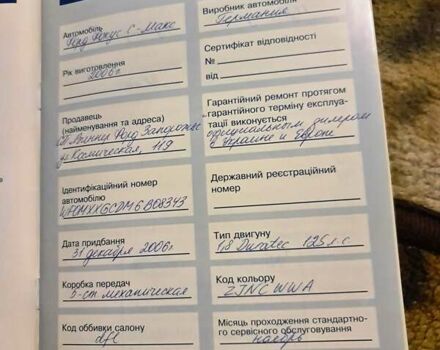 Автомобіль
Форд Фокус С-Макс
Рік виготовлення
2006 г
Продавець
(найменування та адреса)
Форд Запорожье
ул Космическая, 119
Ідентифікаційний номер
автомобілю
WF0MXXGCDM6B08343
Дата придбання
31 декабря 2006г
Коробка передач
5-ст механическая
Код оббивки салону
Виробник автомобіля
Германия
Сертифікат відповідності
№
від
Гарантійний ремонт протягом
гарантійного терміну експлуа-
тації виконується
официальным дилером
в Украине и Европе
Державний реєстраційний
номер
Тип двигуну
1,8 Duratec 125 л-с
Код кольору
ZJNCWWA
Місяць проходження стандартно-
го сервісного обслуговування
ноябрь